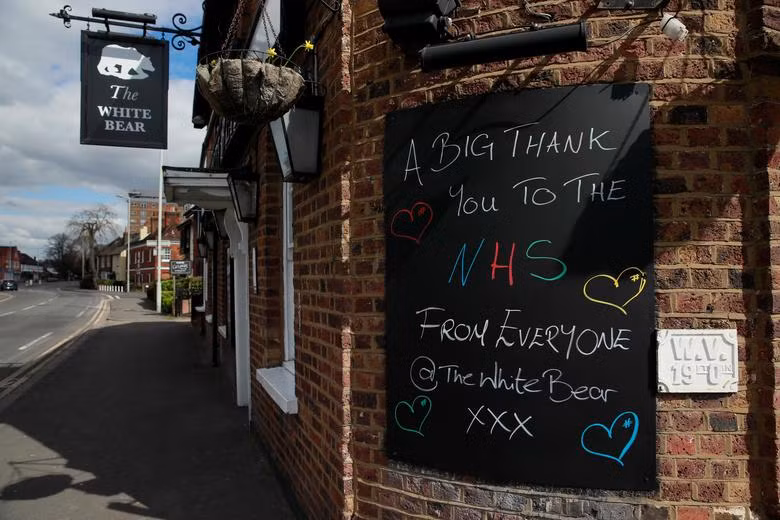 The
WHITE
BEAR
A BIG THANK
YOU TO THE
NHS
FROM EVERYONE
@TheWhiteBear
XXX
W.V.